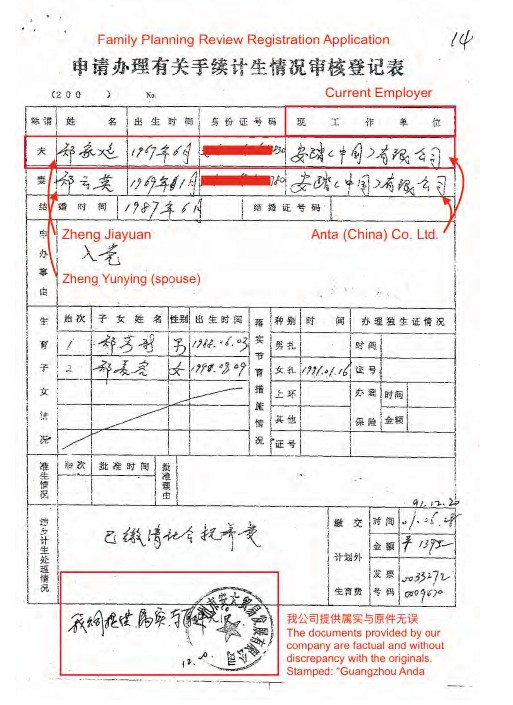 Family Planning Review Registration Application
14
申请办理有关手续计生情况审核登记表
(200 ) No.
Current Employer
称谓 姓 名 出生时间 身份证号码 现 工 作 单 位
夫 郑家园 1967年6月 安踏(中国)有限公司
妻 郑云英 1969年11月 安踏(中国)有限公司
结婚时间 1987年6月 结婚证号码
申办事由 入党
Zheng Jiayuan
Anta (China) Co. Ltd.
Zheng Yunying (spouse)
生育子女情况 胎次 子女姓名 性别 出生时间 落实节育措施情况 种别 时间 办理独生证情况
1 男 1988.06.03 男扎 时间
2 女 女扎 1991.01.16 证号
上环 办理保险 时间
其他 金额
证号
准生情况 胎次 批准时间 批准理由
91.12.20
违占计生处理情况 已缴清社会抚养费 缴交计划外生育费 时间
金额 ¥
发票号码 0033272
我公司提供属实与原件无误
我公司提供属实与原件无误
The documents provided by our
company are factual and without
discrepancy with the originals.
Stamped: “Guangzhou Anda